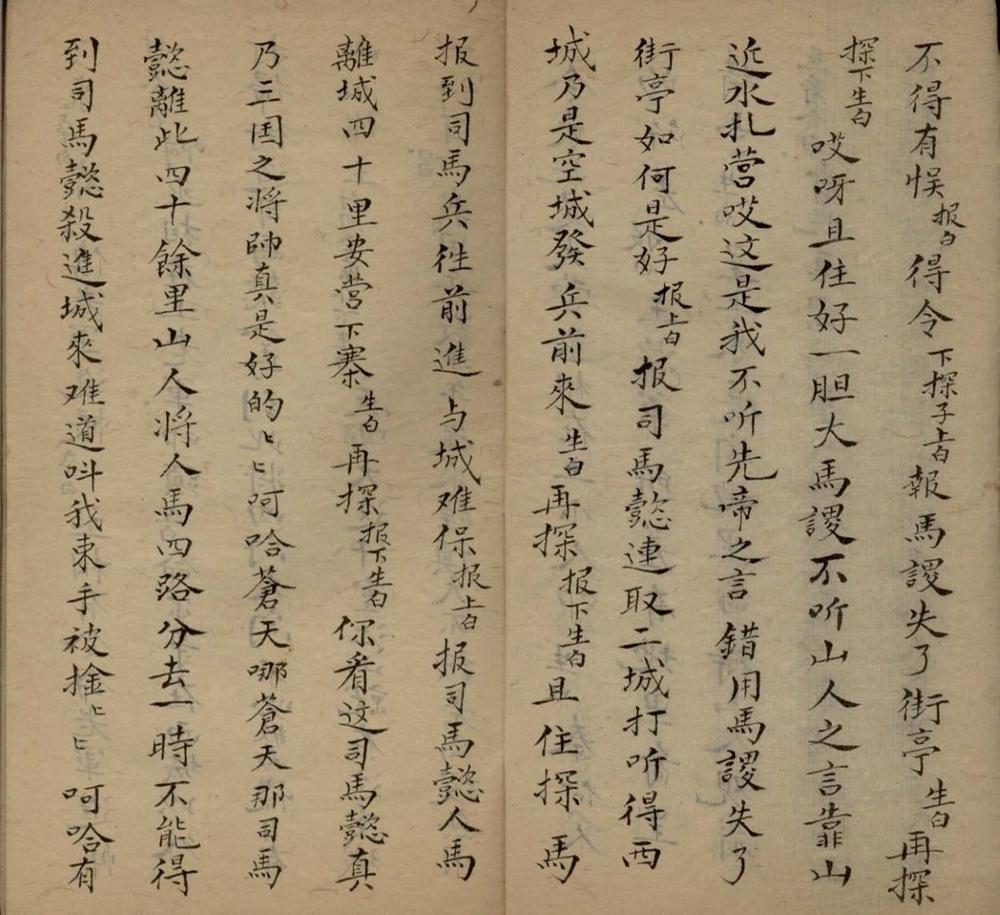 不得有悮报白得令下探子上白報馬謖失了街亭生白再探
探下生白哎呀且住好一胆大馬謖不听山人之言靠山
近水扎营哎这是我不听先帝之言錯用馬謖失了
街亭如何是好报上白报司馬懿連取二城打听得西
城乃是空城發兵前來生白再探报下生白且住探馬
报到司馬兵徃前進与城难保报上白报司馬懿人馬
離城四十里安营下寨生白再探报下生白你看这司馬懿真
乃三囯之将帥真是好的〻〻呵哈蒼天哪蒼天那司馬
懿離此四十餘里山人将人馬四路分去一時不能得
到司馬懿殺進城來难道呌我束手被捦〻〻呵哈有